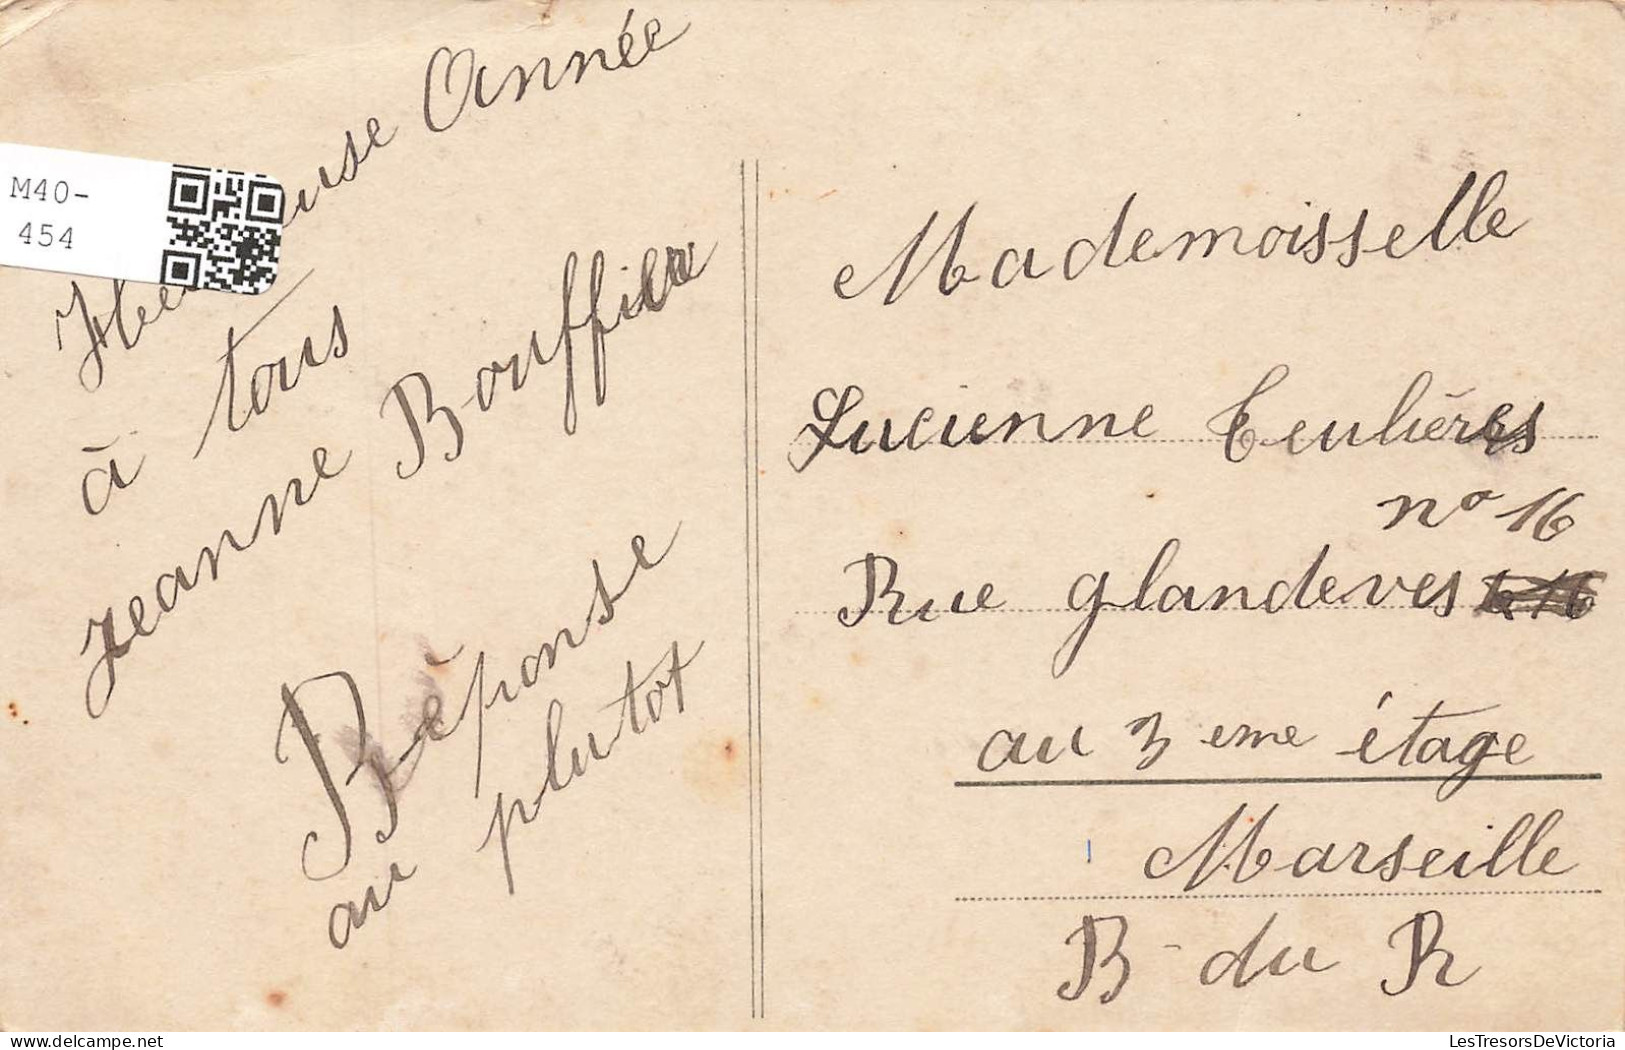 M40-
454
Heureuse Année
à tous
Jeanne Bouffier
Réponse
au plutot
Mademoisselle
Lucienne Teulières
n° 16
Rue glandeves
au 3 eme étage
Marseille
B - du R
LesTresorsDeVictoria
delcampe.net